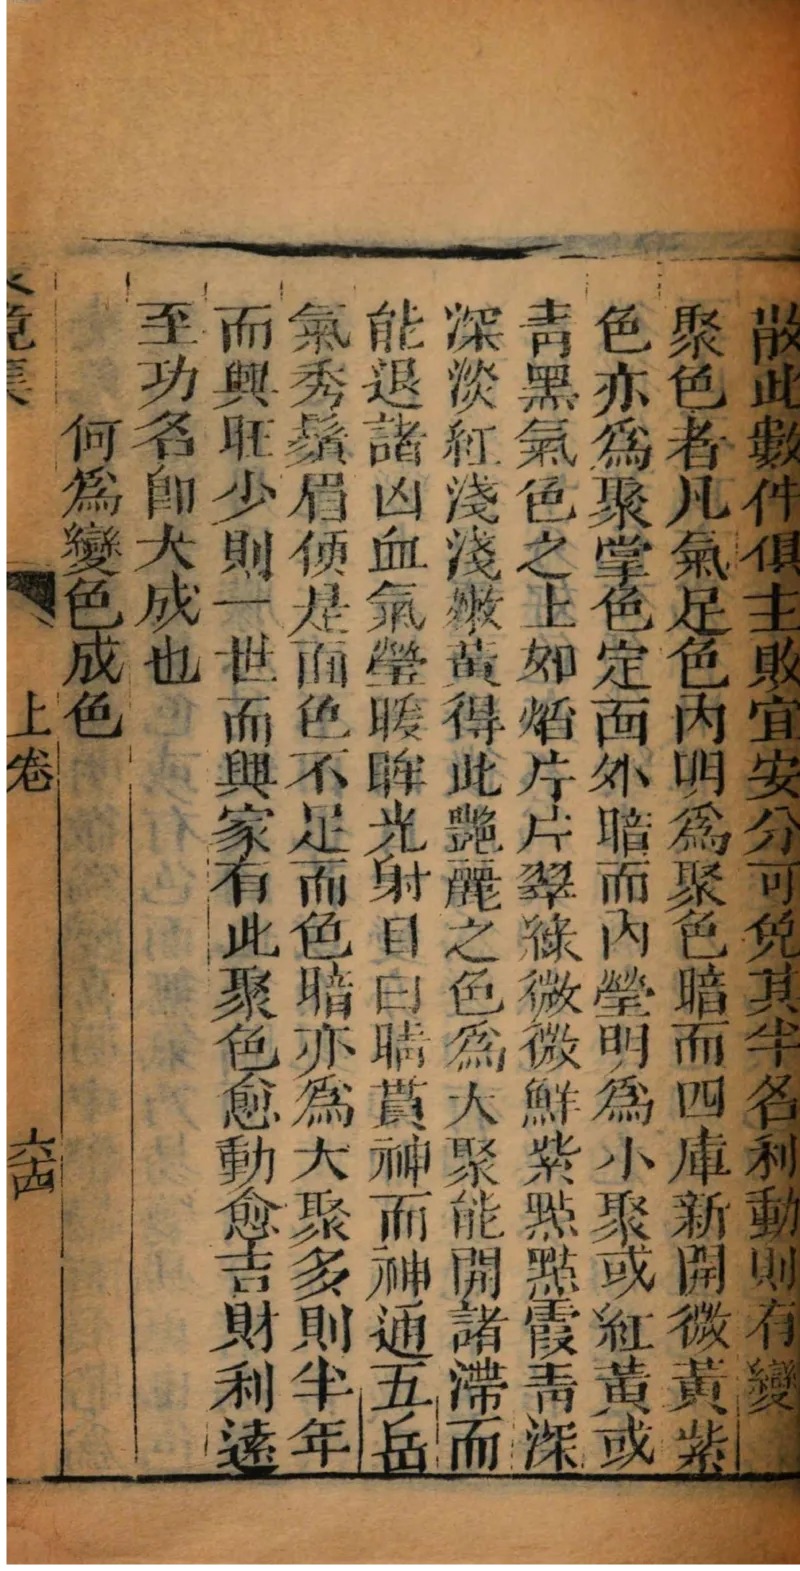 散此數件俱主敗宜安分可免其半名利動則有變
聚色者凡氣足色內明為聚色暗而四庫新開微黃紫
色亦為聚堂色定面外暗而內瑩明為小聚或紅黃或
青黑氣色之上如焰片片翠綠微微鮮紫點點霞青深
深淡紅淺淺嫩黃得此艷麗之色為大聚能開諸滯而
能退諸凶血氣瑩暖眸光射目曰睛貫神而神通五岳
氣秀鬚眉便是面色不足而色暗亦為大聚多則半年
而興旺少則一世而興家有此聚色愈動愈吉財利遠
至功名即大成也
何為變色成色
鏡集
上卷
六四